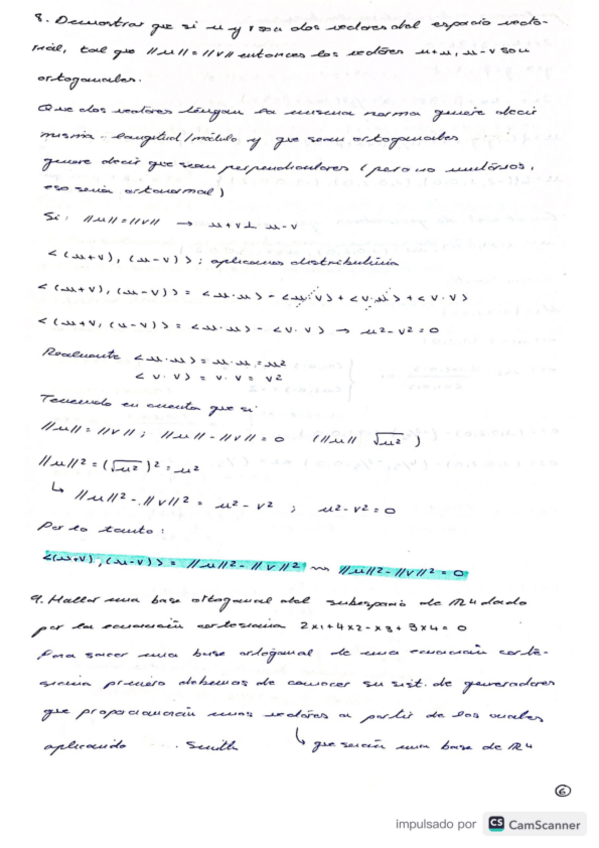 8. Demostrar que si u y v son dos vectores del espacio vecto-
rial, tal que ||u|| = ||v|| entonces los vectores u+v, u-v son
ortogonales.
Que dos vectores tengan la misma norma quiere decir
misma longitud/módulo y que sean ortogonales
quiere decir que sean perpendiculares (pero no unitarios,
eso sería ortonormal)
Si: ||u|| = ||v|| → u+v ⊥ u-v
<(u+v), (u-v)>; aplicamos distributiva
<(u+v), (u-v)> = <u·u> - <u·v> + <v·u> + <v·v>
<(u+v, (u-v)> = <u·u> - <v·v> → u²-v²=0
Realmente <u·u> = u·u = u²
<v·v> = v·v = v²
Teniendo en cuenta que si
||u|| = ||v||; ||u|| - ||v|| = 0 (||u|| √u²)
||u||² = (√u²)² = u²
↳ ||u||² - ||v||² = u² - v² ; u²-v²=0
Por lo tanto:
<(u+v), (u-v)> = ||u||² - ||v||² ⟿ ||u||² - ||v||² = 0
9. Hallar una base ortogonal del subespacio de R4 dado
por la ecuación cartesiana 2x1+4x2-x3+3x4=0
Para sacar una base ortogonal de una ecuación carte-
siana primero debemos de conocer su sist. de generadores
que proporcionarán unos vectores a partir de los cuales
aplicando .... Smith ↳ que serán una base de R4
6
impulsado por CS CamScanner